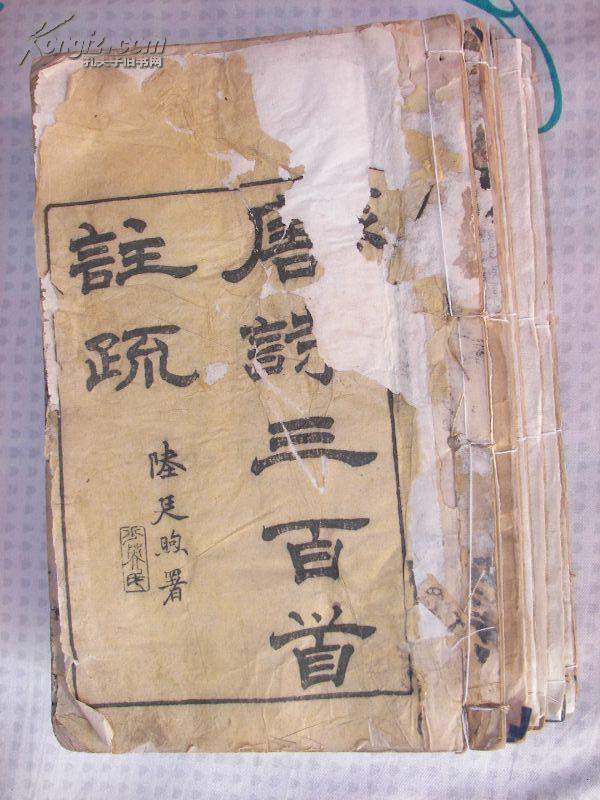 唐詩三百首
註疏
陸廷昫署
Kongfz.com
孔夫子旧书网